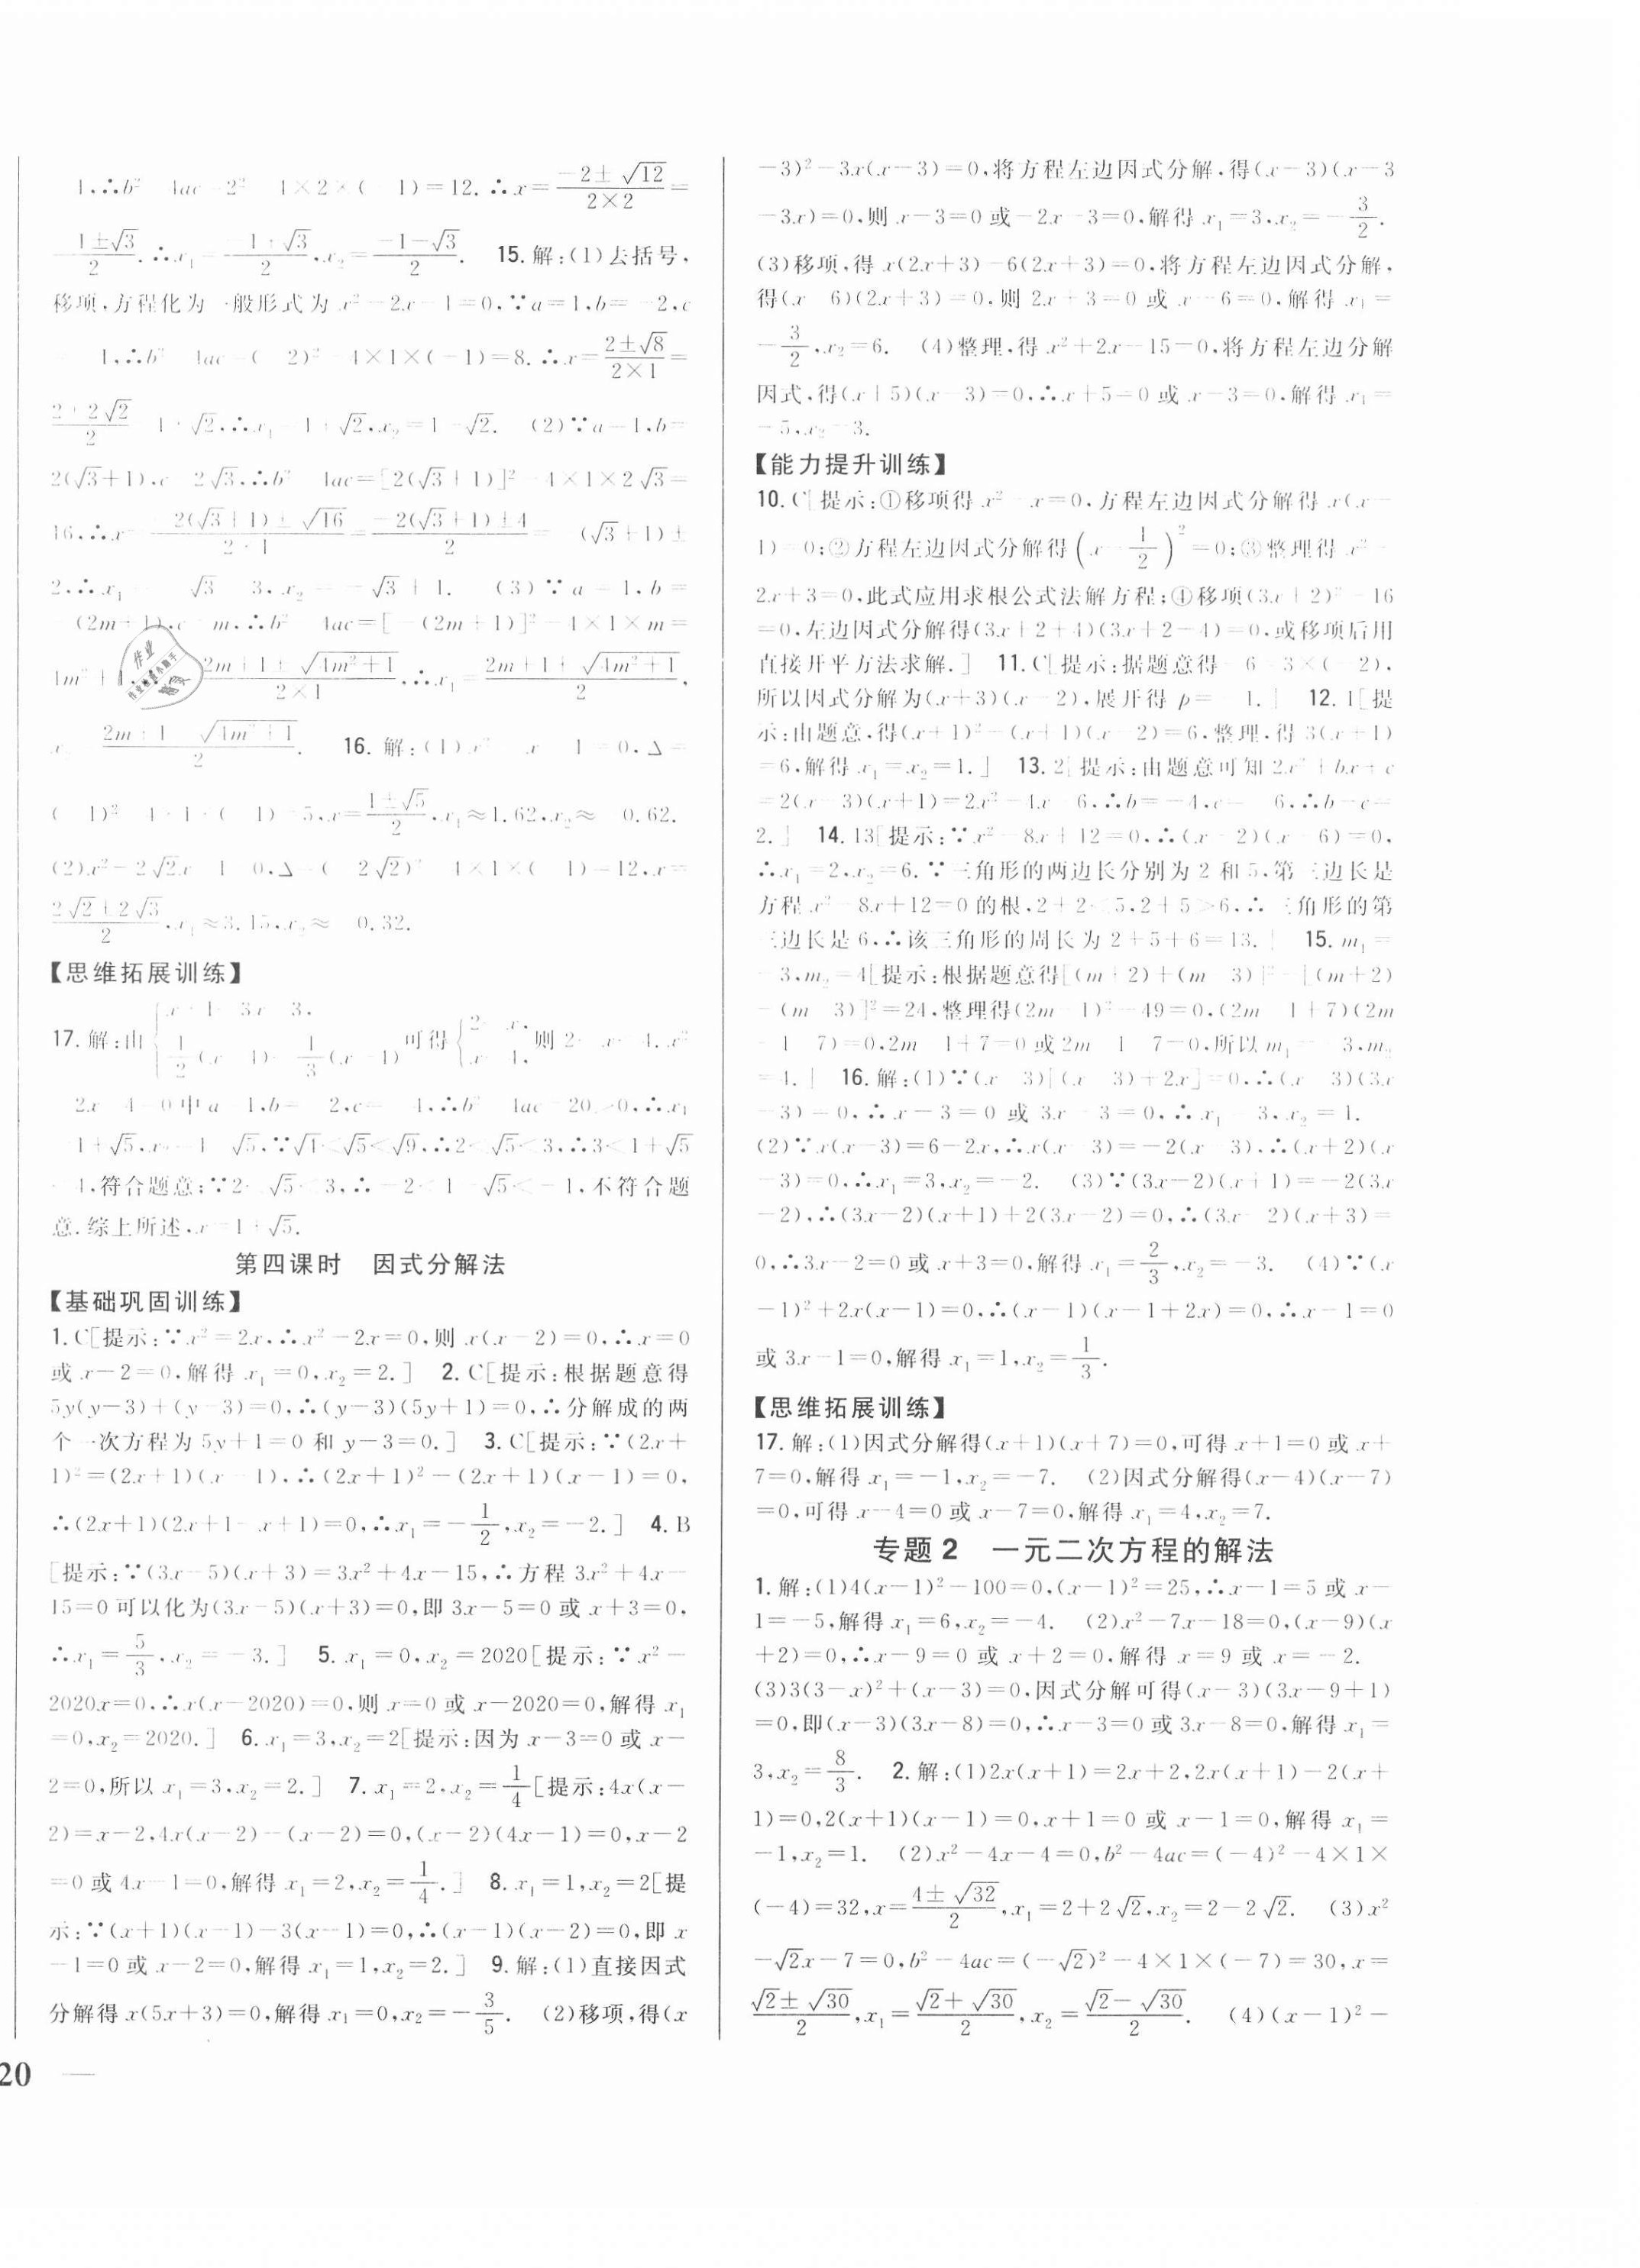 1,∴b² 4ac 2² 4×2×( 1)=12.∴x=(-2±√12)/(2×2)=
(1±√3)/2.∴x₁ (-1+√3)/2,x₂=(-1-√3)/2. 15.解:(1)去括号,
移项,方程化为一般形式为 x²-2x-1=0,∵a=1,b=-2,c
1,∴b² 4ac ( 2)²-4×1×(-1)=8.∴x=(2±√8)/(2×1)=
(2±2√2)/2 1±√2,∴x₁ 1+√2,x₂=1-√2. (2)∵a=1,b=
2(√3+1),c 2√3,∴b² 4ac=[2(√3+1)]²-4×1×2√3=
16,∴x (2(√3+1)±√16)/(2·1)=(-2(√3+1)±4)/2= (√3+1)±
2,∴x₁ √3 3,x₂ -√3+1. (3)∵a=1,b=
(2m+1),c m,∴b² 4ac=[-(2m+1)]²-4×1×m=
4m²+1, (2m+1±√(4m²+1))/(2×1),∴x₁=(2m+1+√(4m²+1))/2,
x (2m+1 √(4m²+1))/2. 16.解:(1)x² x 1=0,Δ=
( 1)² 4·1·( 1) 5,x=(1±√5)/2,x₁≈1.62,x₂≈ 0.62.
(2)x²-2√2x 1 0,Δ=( 2√2)² 4×1×( 1)=12,x=
(2√2±2√3)/2,x₁≈3.15,x₂≈ 0.32.
【思维拓展训练】
17.解:由{x+1 3x 3, 1/2(x 4) 1/3(x 4) 可得{2 x, x 4, 则2 x 4. x²
2x 4=0中a 1,b= 2,c= 4,∴b² 4ac=20>0,∴x₁
1+√5,x₂=1 √5,∵√4<√5<√9,∴2<√5<3,∴3<1+√5
4,符合题意;∵2<√5<3,∴-2<1-√5<-1,不符合题
意.综上所述,x=1+√5.
第四课时 因式分解法
【基础巩固训练】
1.C[提示:∵x²=2x,∴x²-2x=0,则x(x-2)=0,∴x=0
或x-2=0,解得x₁=0,x₂=2.] 2.C[提示:根据题意得
5y(y-3)+(y-3)=0,∴(y-3)(5y+1)=0,∴分解成的两
个一次方程为5y+1=0和y-3=0.] 3.C[提示:∵(2x+
1)²=(2x+1)(x-1),∴(2x+1)²-(2x+1)(x-1)=0,
∴(2x+1)(2x+1-x+1)=0,∴x₁=-1/2,x₂=-2.] 4.B
[提示:∵(3x-5)(x+3)=3x²+4x-15,∴方程3x²+4x-
15=0可以化为(3x-5)(x+3)=0,即3x-5=0或x+3=0,
∴x₁=5/3,x₂=-3.] 5.x₁=0,x₂=2020[提示:∵x²-
2020x=0,∴x(x-2020)=0,则x=0或x-2020=0,解得x₁
=0,x₂=2020.] 6.x₁=3,x₂=2[提示:因为x-3=0或x-
2=0,所以x₁=3,x₂=2.] 7.x₁=2,x₂=1/4[提示:4x(x-
2)=x-2,4x(x-2)-(x-2)=0,(x-2)(4x-1)=0,x-2
=0或4x-1=0,解得x₁=2,x₂=1/4.] 8.x₁=1,x₂=2[提
示:∵(x+1)(x-1)-3(x-1)=0,∴(x-1)(x-2)=0,即x
-1=0或x-2=0,解得x₁=1,x₂=2.] 9.解:(1)直接因式
分解得x(5x+3)=0,解得x₁=0,x₂=-3/5. (2)移项,得(x
20 —
-3)²-3x(x-3)=0,将方程左边因式分解,得(x-3)(x-3
-3x)=0,则x-3=0或-2x-3=0,解得x₁=3,x₂=-3/2.
(3)移项,得x(2x+3)-6(2x+3)=0,将方程左边因式分解,
得(x-6)(2x+3)=0,则2x+3=0或x-6=0,解得x₁=
-3/2,x₂=6. (4)整理,得x²+2x-15=0,将方程左边分解
因式,得(x+5)(x-3)=0,∴x+5=0或x-3=0,解得x₁=
-5,x₂=3.
【能力提升训练】
10.C[提示:①移项得x²-x=0,方程左边因式分解得x(x-
1)=0;②方程左边因式分解得(x-1/2)²=0;③整理得x²-
2x+3=0,此式应用求根公式法解方程;④移项(3x+2)²-16
=0,左边因式分解得(3x+2+4)(3x+2-4)=0,或移项后用
直接开平方法求解.] 11.C[提示:据题意得-6=3×(-2),
所以因式分解为(x+3)(x-2),展开得p= 1.] 12.1[提
示:由题意,得(x+1)²-(x+1)(x-2)=6,整理,得3(x+1)
=6,解得x₁=x₂=1.] 13.2[提示:由题意可知2x²+bx+c
=2(x-3)(x+1)=2x²-4x-6,∴b=-4,c=-6,∴b-c=
2.] 14.13[提示:∵x²-8x+12=0,∴(x-2)(x-6)=0,
∴x₁=2,x₂=6.∵三角形的两边长分别为2和5,第三边长是
方程x²-8x+12=0的根,2+2<5,2+5>6,∴三角形的第
三边长是6,∴该三角形的周长为2+5+6=13.] 15.m₁=
-3,m₂=4[提示:根据题意得[(m+2)+(m-3)]²-[(m+2)
-(m-3)]²=24,整理得(2m-1)²-49=0,(2m-1+7)(2m
-1-7)=0,2m-1+7=0或2m-1-7=0,所以m₁=-3,m₂
=4.] 16.解:(1)∵(x-3)[(x-3)+2x]=0,∴(x-3)(3x
-3)=0,∴x-3=0或3x-3=0,∴x₁=3,x₂=1.
(2)∵x(x-3)=6-2x,∴x(x-3)=-2(x-3),∴(x+2)(x
-3)=0,∴x₁=3,x₂=-2. (3)∵(3x-2)(x+1)=-2(3x
-2),∴(3x-2)(x+1)+2(3x-2)=0,∴(3x-2)(x+3)=
0,∴3x-2=0或x+3=0,解得x₁=2/3,x₂=-3. (4)∵(x
-1)²+2x(x-1)=0,∴(x-1)(x-1+2x)=0,∴x-1=0
或3x-1=0,解得x₁=1,x₂=1/3.
【思维拓展训练】
17.解:(1)因式分解得(x+1)(x+7)=0,可得x+1=0或x+
7=0,解得x₁=-1,x₂=-7. (2)因式分解得(x-4)(x-7)
=0,可得x-4=0或x-7=0,解得x₁=4,x₂=7.
专题2 一元二次方程的解法
1.解:(1)4(x-1)²-100=0,(x-1)²=25,∴x-1=5或x-
1=-5,解得x₁=6,x₂=-4. (2)x²-7x-18=0,(x-9)(x
+2)=0,∴x-9=0或x+2=0,解得x=9或x=-2.
(3)3(3-x)²+(x-3)=0,因式分解可得(x-3)(3x-9+1)
=0,即(x-3)(3x-8)=0,∴x-3=0或3x-8=0,解得x₁=
3,x₂=8/3. 2.解:(1)2x(x+1)=2x+2,2x(x+1)-2(x+
1)=0,2(x+1)(x-1)=0,x+1=0或x-1=0,解得x₁=
-1,x₂=1. (2)x²-4x-4=0,b²-4ac=(-4)²-4×1×
(-4)=32,x=(4±√32)/2,x₁=2+2√2,x₂=2-2√2. (3)x²
-√2x-7=0,b²-4ac=(-√2)²-4×1×(-7)=30,x=
(√2±√30)/2,x₁=(√2+√30)/2,x₂=(√2-√30)/2. (4)(x-1)²-